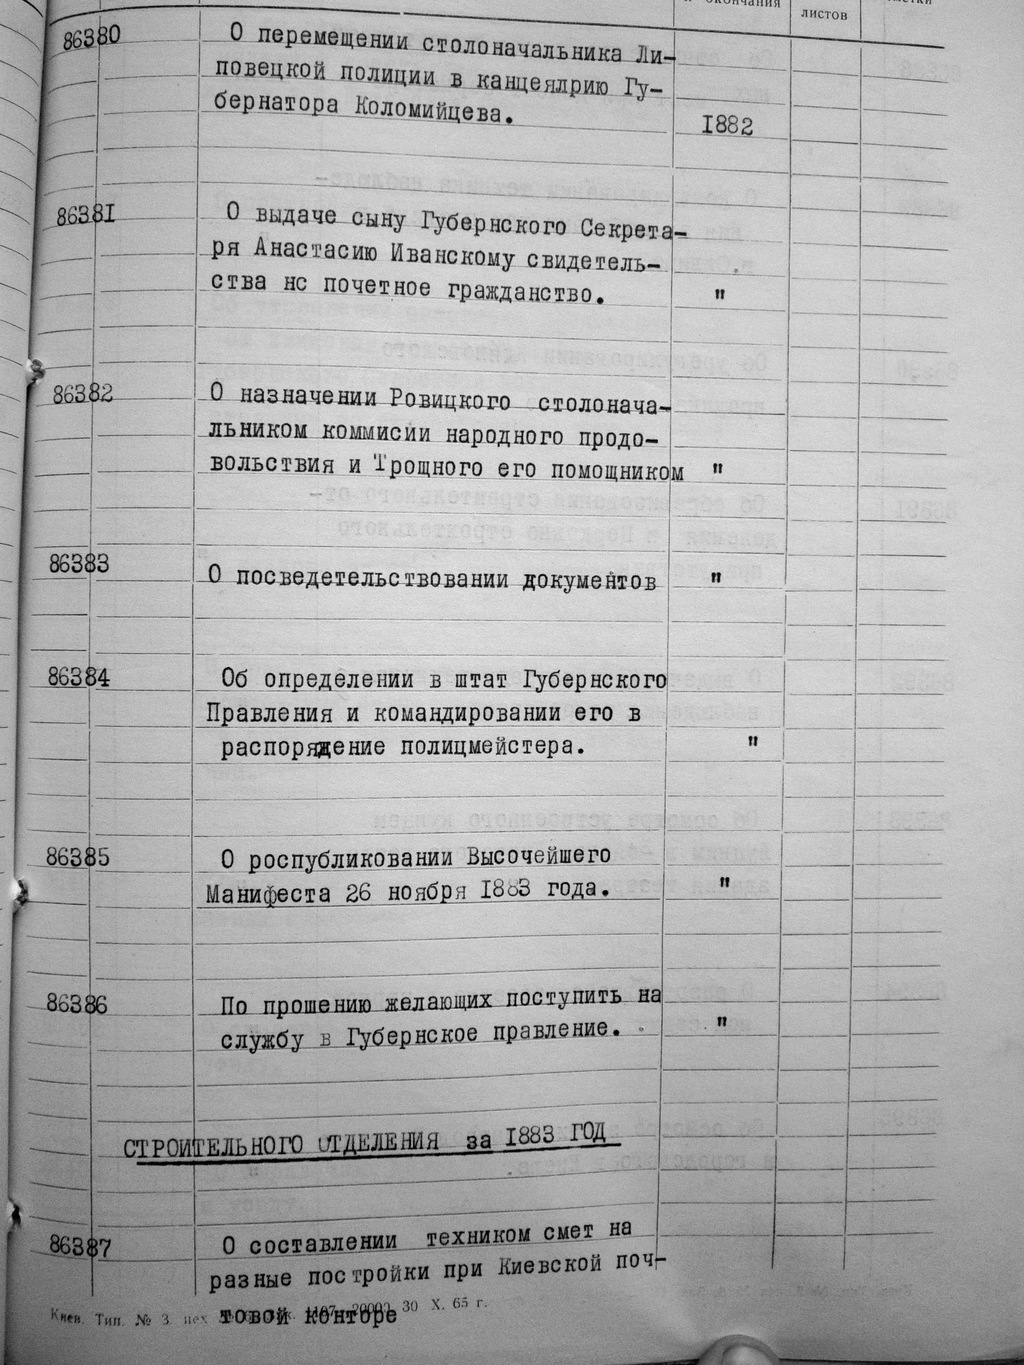 и окончания
листов
86380 О перемещении столоначальника Ли-
повецкой полиции в канцеялрию Гу-
бернатора Коломийцева. 1882
86381 О выдаче сыну Губернского Секрета-
ря Анастасию Иванскому свидетель-
ства нс почетное гражданство. "
86382 О назначении Ровицкого столонача-
льником коммисии народного продо-
вольствия и Трощного его помощником "
86383 О посведетельствовании документов "
86384 Об определении в штат Губернского
Правления и командировании его в
распоряжение полицмейстера. "
86385 О роспубликовании Высочейшего
Манифеста 26 ноября 1883 года. "
86386 По прошению желающих поступить на
службу в Губернское правление. "
СТРОИТЕЛЬНОГО ОТДЕЛЕНИЯ за 1883 ГОД
86387 О составлении техником смет на
разные постройки при Киевской поч-
товой конторе
Киев. Тип. № 3. 30 X. 65 г.